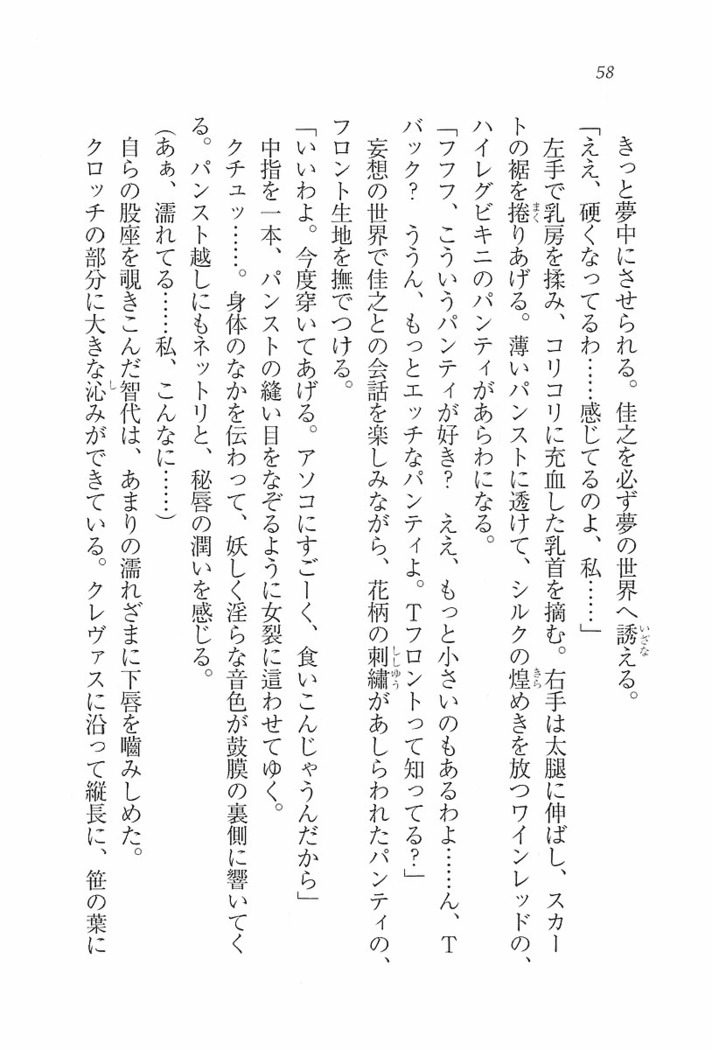 58
きっと夢中にさせられる。佳之を必ず夢の世界へ誘える。
「ええ、硬くなってるわ……感じてるのよ、私……」
左手で乳房を揉み、コリコリに充血した乳首を摘む。右手は太腿に伸ばし、スカー
トの裾を捲りあげる。薄いパンストに透けて、シルクの煌めきを放つワインレッドの、
ハイレグビキニのパンティがあらわになる。
「フフフ、こういうパンティが好き？　ええ、もっと小さいのもあるわよ……ん、Ｔ
バック？　ううん、もっとエッチなパンティよ。Ｔフロントって知ってる？」
妄想の世界で佳之との会話を楽しみながら、花柄の刺繍があしらわれたパンティの、
フロント生地を撫でつける。
「いいわよ。今度穿いてあげる。アソコにすごーく、食いこんじゃうんだから」
中指を一本、パンストの縫い目をなぞるように女裂に這わせてゆく。
クチュッ……。身体のなかを伝わって、妖しく淫らな音色が鼓膜の裏側に響いてく
る。パンスト越しにもネットリと、秘唇の潤いを感じる。
（あぁ、濡れてる……私、こんなに……）
自らの股座を覗きこんだ智代は、あまりの濡れざまに下唇を嚙みしめた。
クロッチの部分に大きな沁みができている。クレヴァスに沿って縦長に、笹の葉に